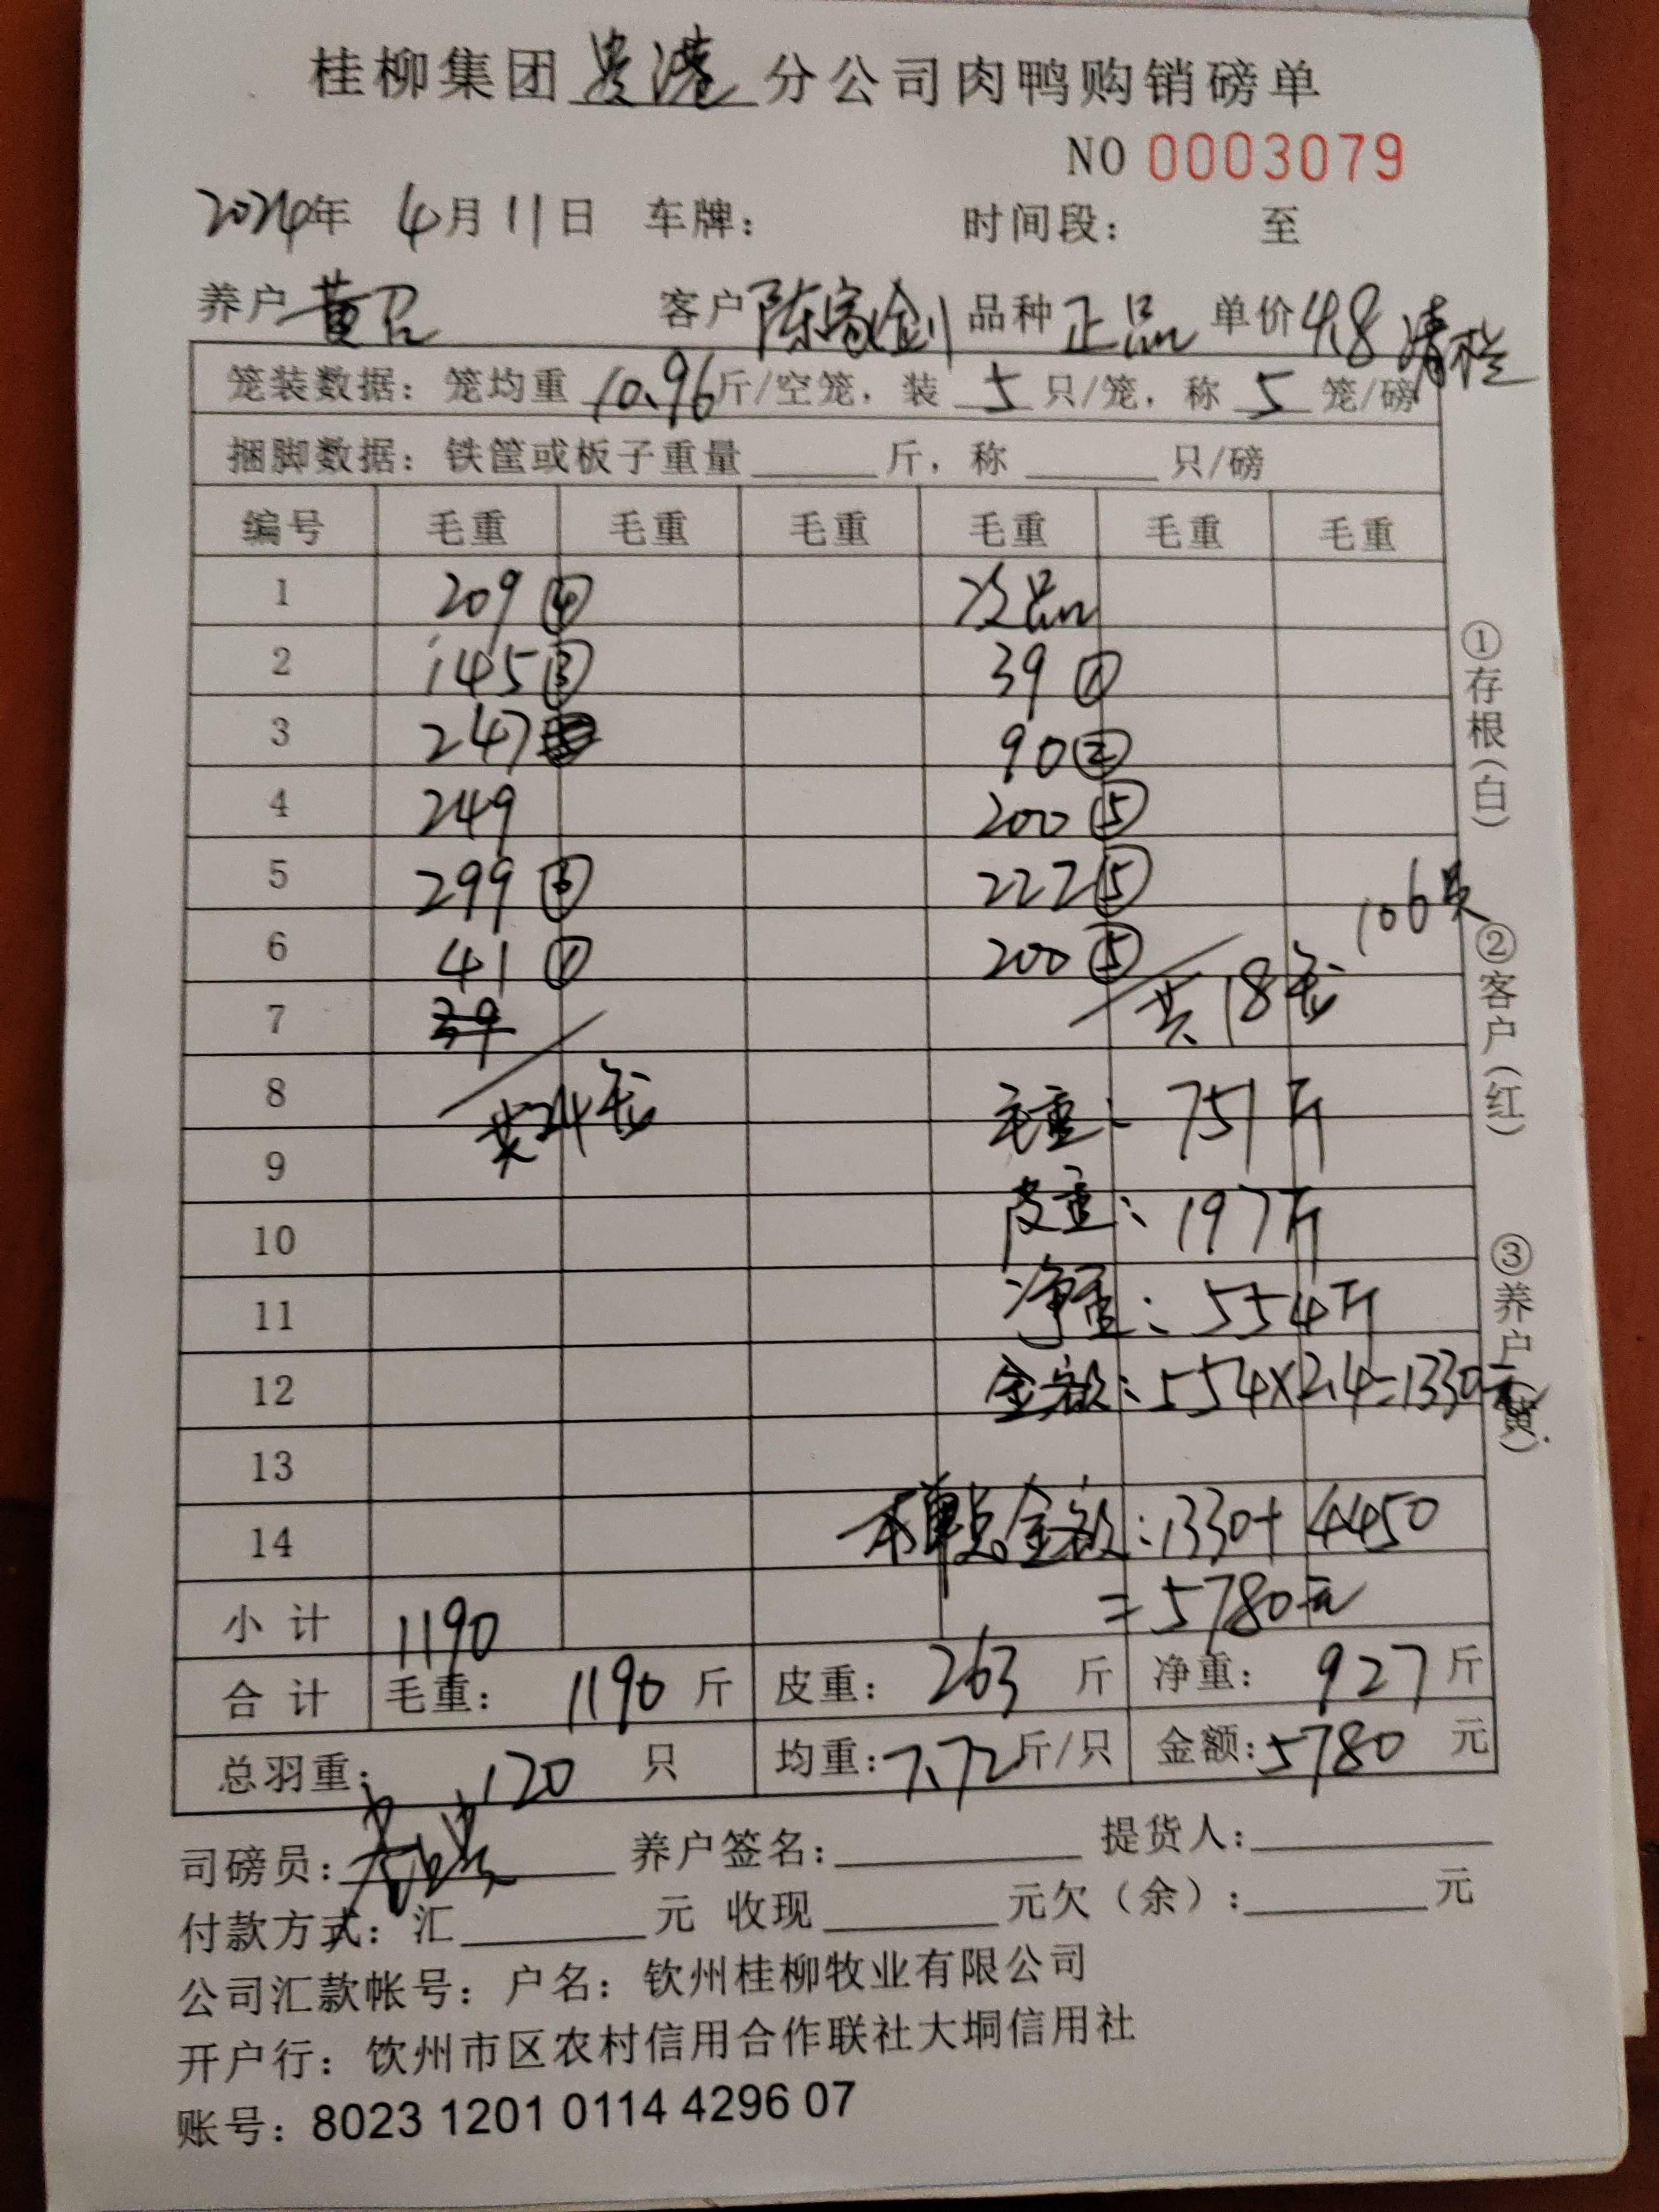 桂柳集团贵港分公司肉鸭购销磅单
NO 0003079
2024年 4月11日 车牌: 时间段: 至
养户 黄召 客户 陈家剑 品种 正品 单价 4.8 清栏
笼装数据: 笼均重 10.96 斤/空笼, 装 5 只/笼, 称 5 笼/磅
捆脚数据: 铁筐或板子重量 斤, 称 只/磅
编号 毛重 毛重 毛重 毛重 毛重 毛重
1 209 ④ 次品
2 145 ③ 39 ①
3 247 90 ②
4 249 200 ⑤
5 299 ⑥ 222 ⑤ 106只
6 41 ① 200 ⑤ 共18笼
7 39
8 共24笼 毛重: 751斤
9
10 皮重: 197斤
11 净重: 554斤
12 金额: 554×2.4=1330元
13
14 本单总金额: 1330+4450
小计 1190 =5780元
合计 毛重: 1190 斤 皮重: 263 斤 净重: 927 斤
总羽重: 120 只 均重: 7.72 斤/只 金额: 5780 元
司磅员: 养户签名: 提货人:
付款方式: 汇 元 收现 元欠（余）: 元
公司汇款帐号: 户名: 钦州桂柳牧业有限公司
开户行: 饮州市区农村信用合作联社大垌信用社
账号: 8023 1201 0114 4296 07
①存根（白）
②客户（红）
③养户（黄）